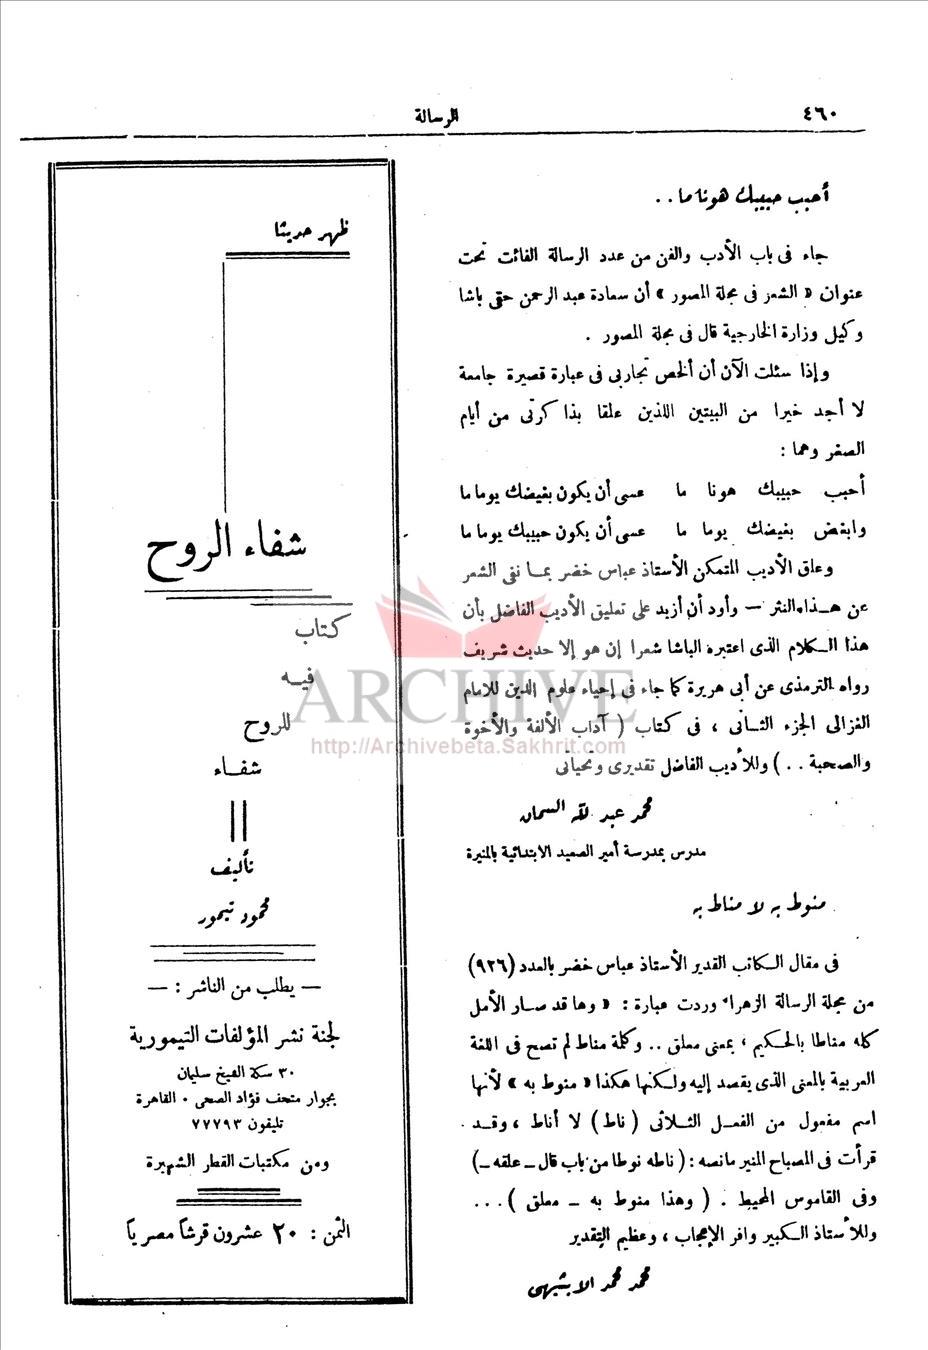 ٤٦٠
الرسالة
أحبب حبيبك هونا ما ..
جاء فى باب الأدب والفن من عدد الرسالة الفائت تحت
عنوان « الشعر فى مجلة المصور » أن سعادة عبد الرحمن حقى باشا
وكيل وزارة الخارجية قال فى مجلة المصور .
وإذا سئلت الآن أن ألخص تجاربى فى عبارة قصيرة جامعة
لا أجد خيرا من البيتين اللذين علقا بذاكرتى من أيام
الصغر وهما :
أحبب حبيبك هونا ما عسى أن يكون بغيضك يوما ما
وابغض بغيضك يوما ما عسى أن يكون حبيبك يوما ما
وعلق الأديب المتمكن الأستاذ عباس خضر بما نفى الشعر
عن هذا النثر — وأود أن أزيد على تعليق الأديب الفاضل بأن
هذا الكلام الذى اعتبره الباشا شعرا إن هو إلا حديث شريف
رواه الترمذى عن أبى هريرة كما جاء فى إحياء علوم الدين للامام
الغزالى الجزء الثانى ، فى كتاب ( آداب الألفة والأخوة
والصحبة .. ) وللأديب الفاضل تقديرى وتحياتى
محمد عبد الله السمان
مدرس بمدرسة أمير الصعيد الابتدائية بالمنيرة
منوط به لا مناط به
فى مقال الكاتب القدير الأستاذ عباس خضر بالعدد (٩٢٦)
من مجلة الرسالة الزهراء وردت عبارة : « وها قد صار الأمل
كله مناطا بالحكيم ، بمعنى معلق .. وكلمة مناط لم تصح فى اللغة
العربية بالمعنى الذى يقصد إليه ولكنها هكذا « منوط به » لأنها
اسم مفعول من الفعل الثلاثى ( ناط ) لا أناط ، وقد
قرأت فى المصباح المنير مانصه : ( ناطه نوطا من باب قال ــ علقه ــ )
وفى القاموس المحيط . ( وهذا منوط به ــ معلق ) ...
وللأستاذ الكبير وافر الإعجاب ، وعظيم التقدير
محمد محمد الابشيهى
ظهر حديثا
شفاء الروح
كتاب
فيه
للروح
شفاء
تأليف
محمود تيمور
— يطلب من الناشر : —
لجنة نشر المؤلفات التيمورية
٣٠ سكة الشيخ سليمان
بجوار متحف فؤاد الصحى ٠ القاهرة
تليفون ٧٧٧٩٣
ومن مكتبات القطر الشهيرة
الثمن : ٢٠ عشرون قرشاً مصرياً
ARCHIVE
http://Archivebeta.Sakhrit.com